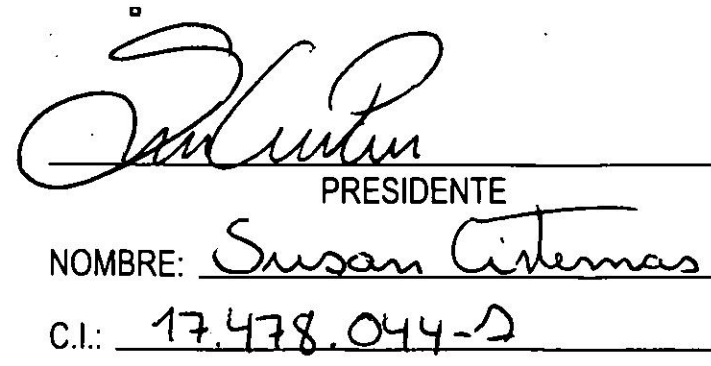 PRESIDENTE
NOMBRE: Susan Cisternas
C.I.: 17.478.044-